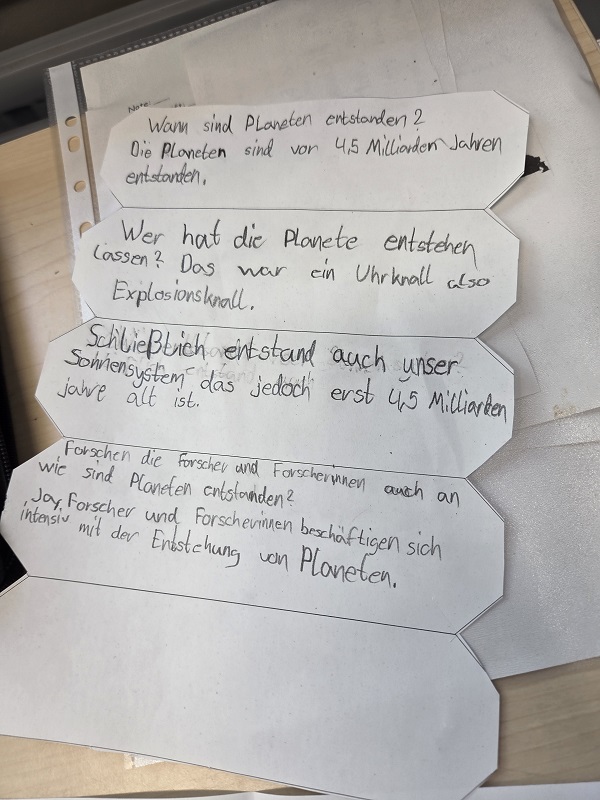 Note:
Wann sind Planeten entstanden?
Die Planeten sind vor 4,5 Milliarden Jahren
entstanden.
Wer hat die Planete entstehen
lassen? Das war ein Uhrknall also
Explosionsknall.
Schließlich entstand auch unser
Sonnensystem das jedoch erst 4,5 Milliarden
jahre alt ist.
Forschen die Forscher und Forscherinnen auch an
wie sind Planeten entstanden?
Ja, Forscher und Forscherinnen beschäftigen sich
intensiv mit der Entstehung von Planeten.